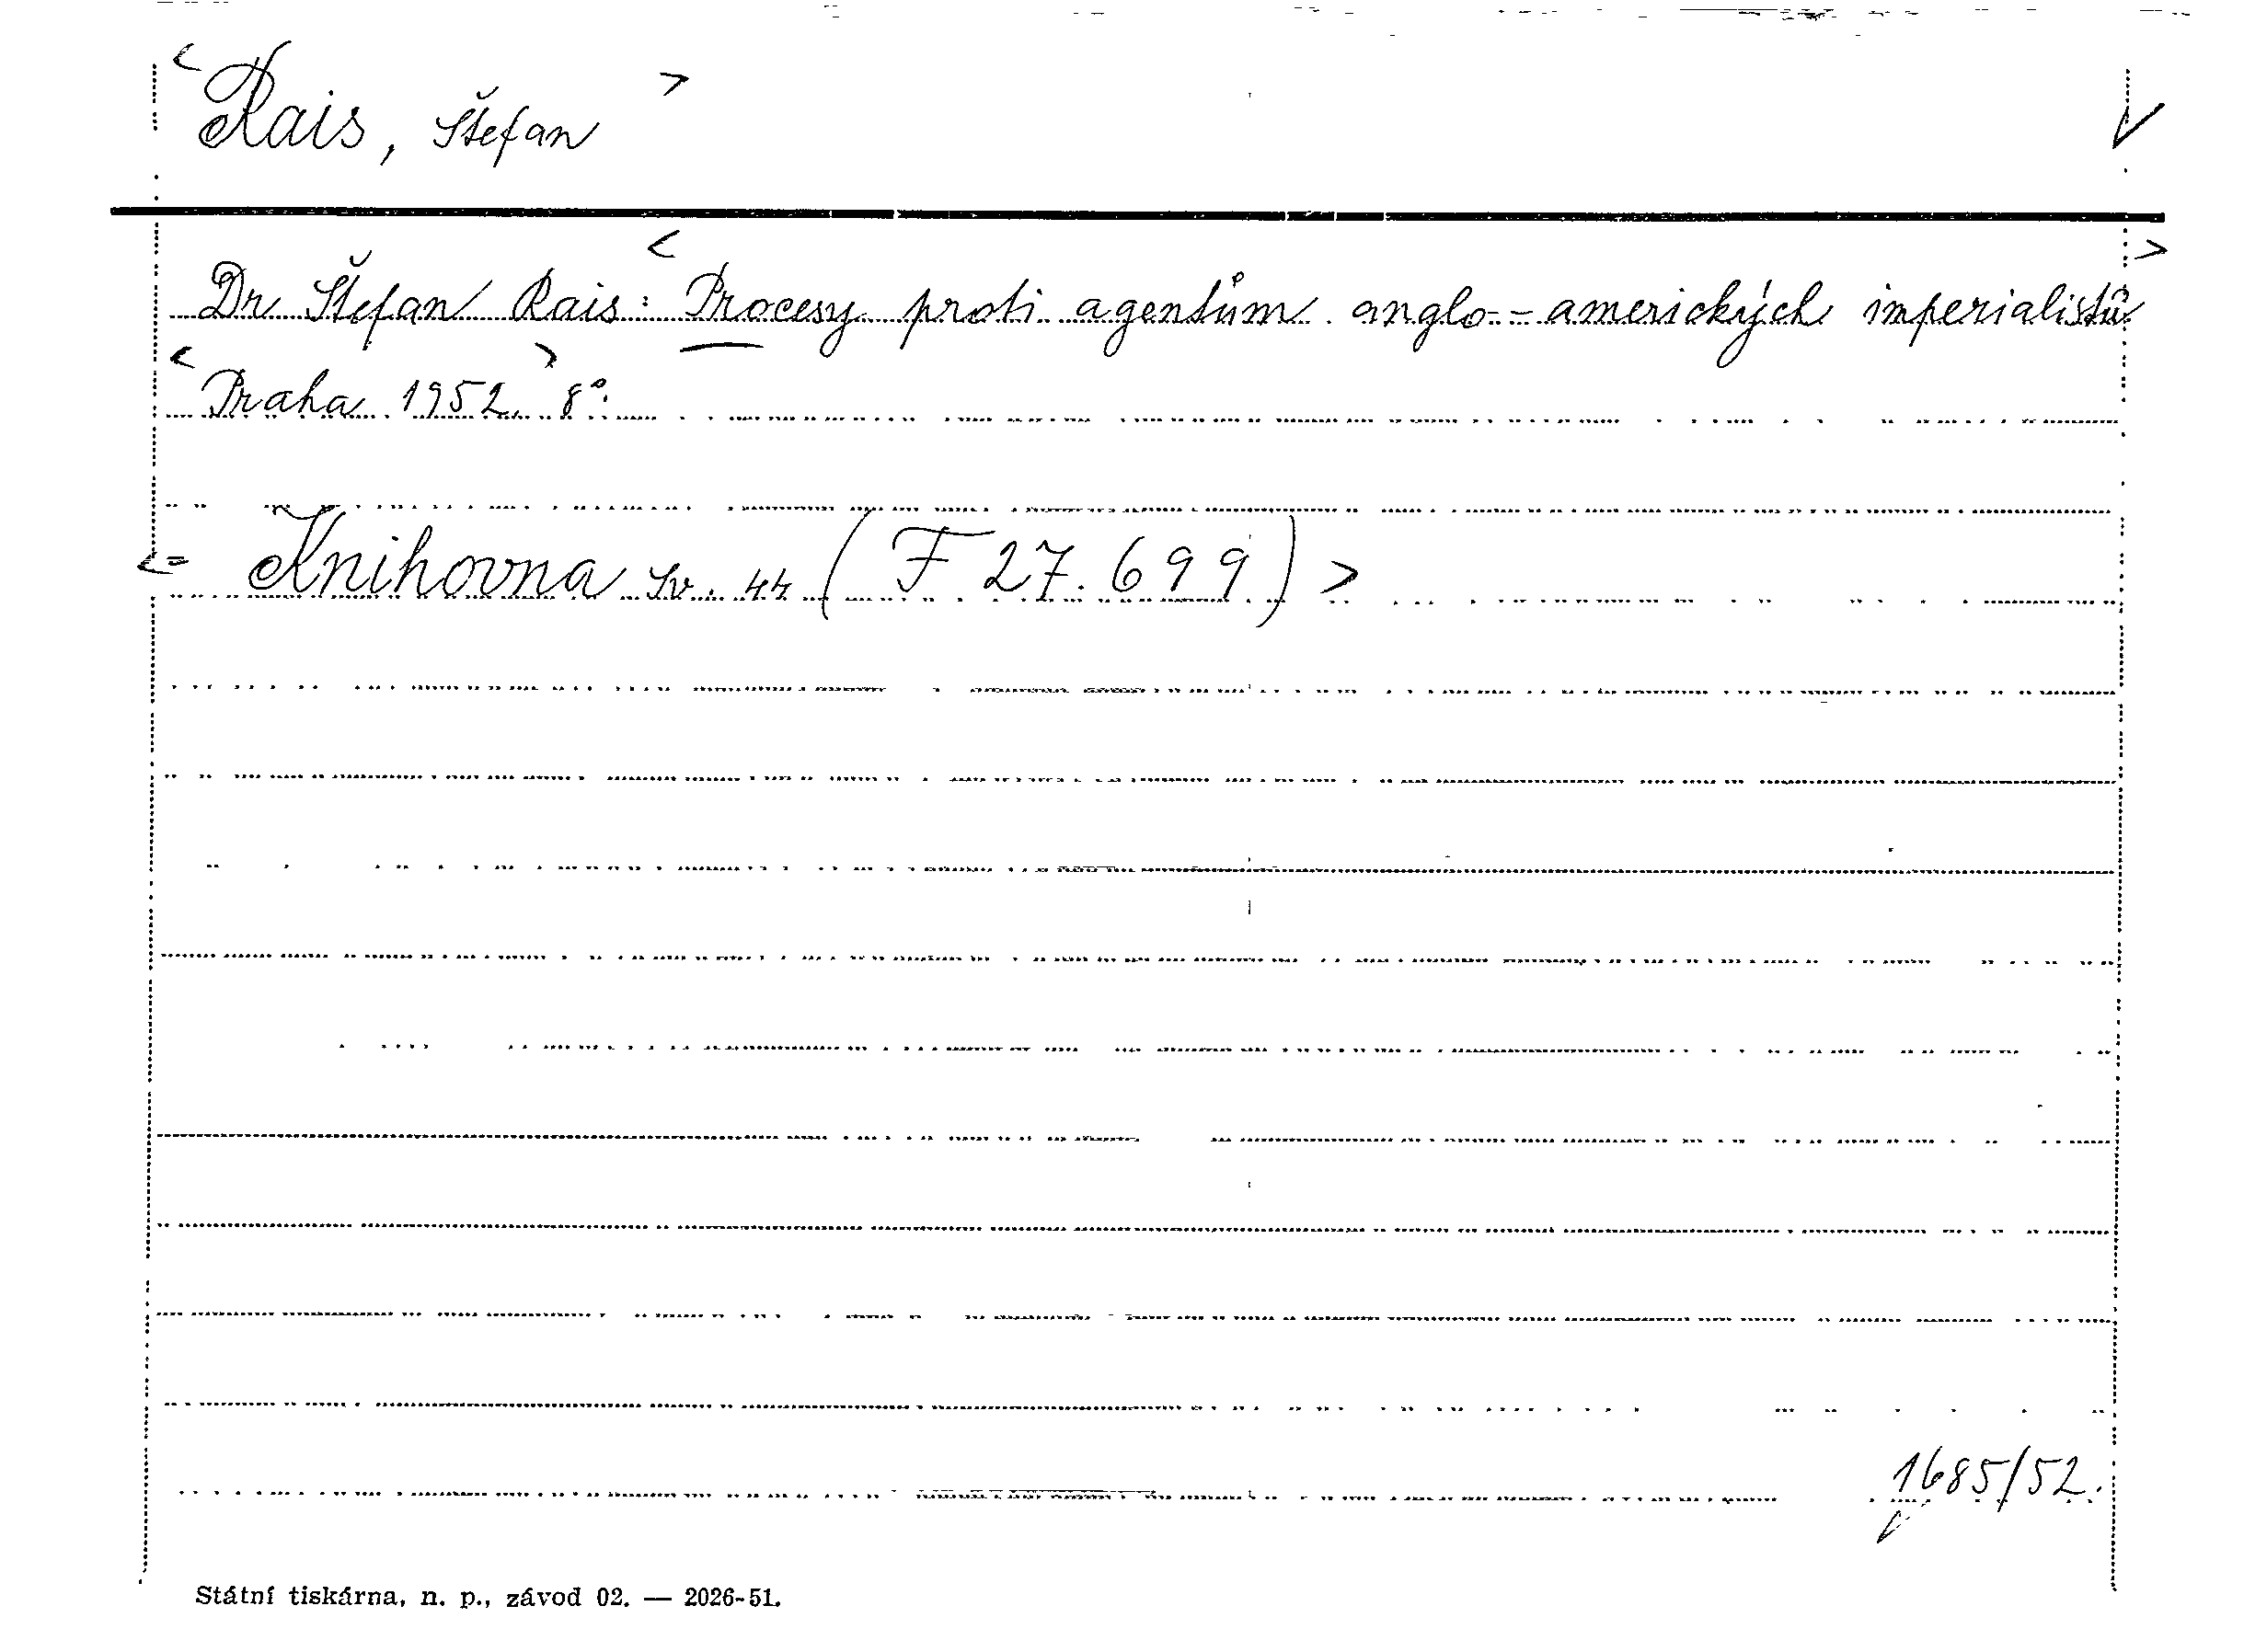 < Rais, Štefan >
Dr Štefan Rais: < Procesy proti agentům anglo-amerických imperialistů >
< Praha 1952. > 8°.
<= Knihovna sv. 44 (F 27.699) >
1685/52.
Státní tiskárna, n. p., závod 02. — 2026-51.